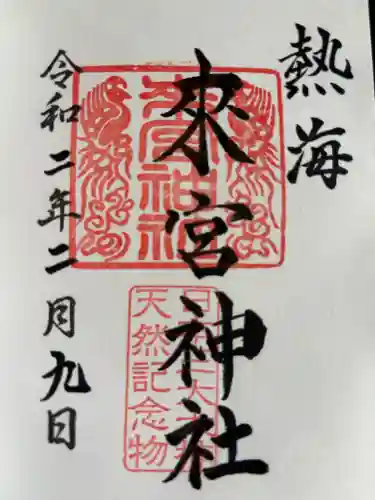 熱海
來宮神社
令和二年二月九日
來宮神社
天然記念物